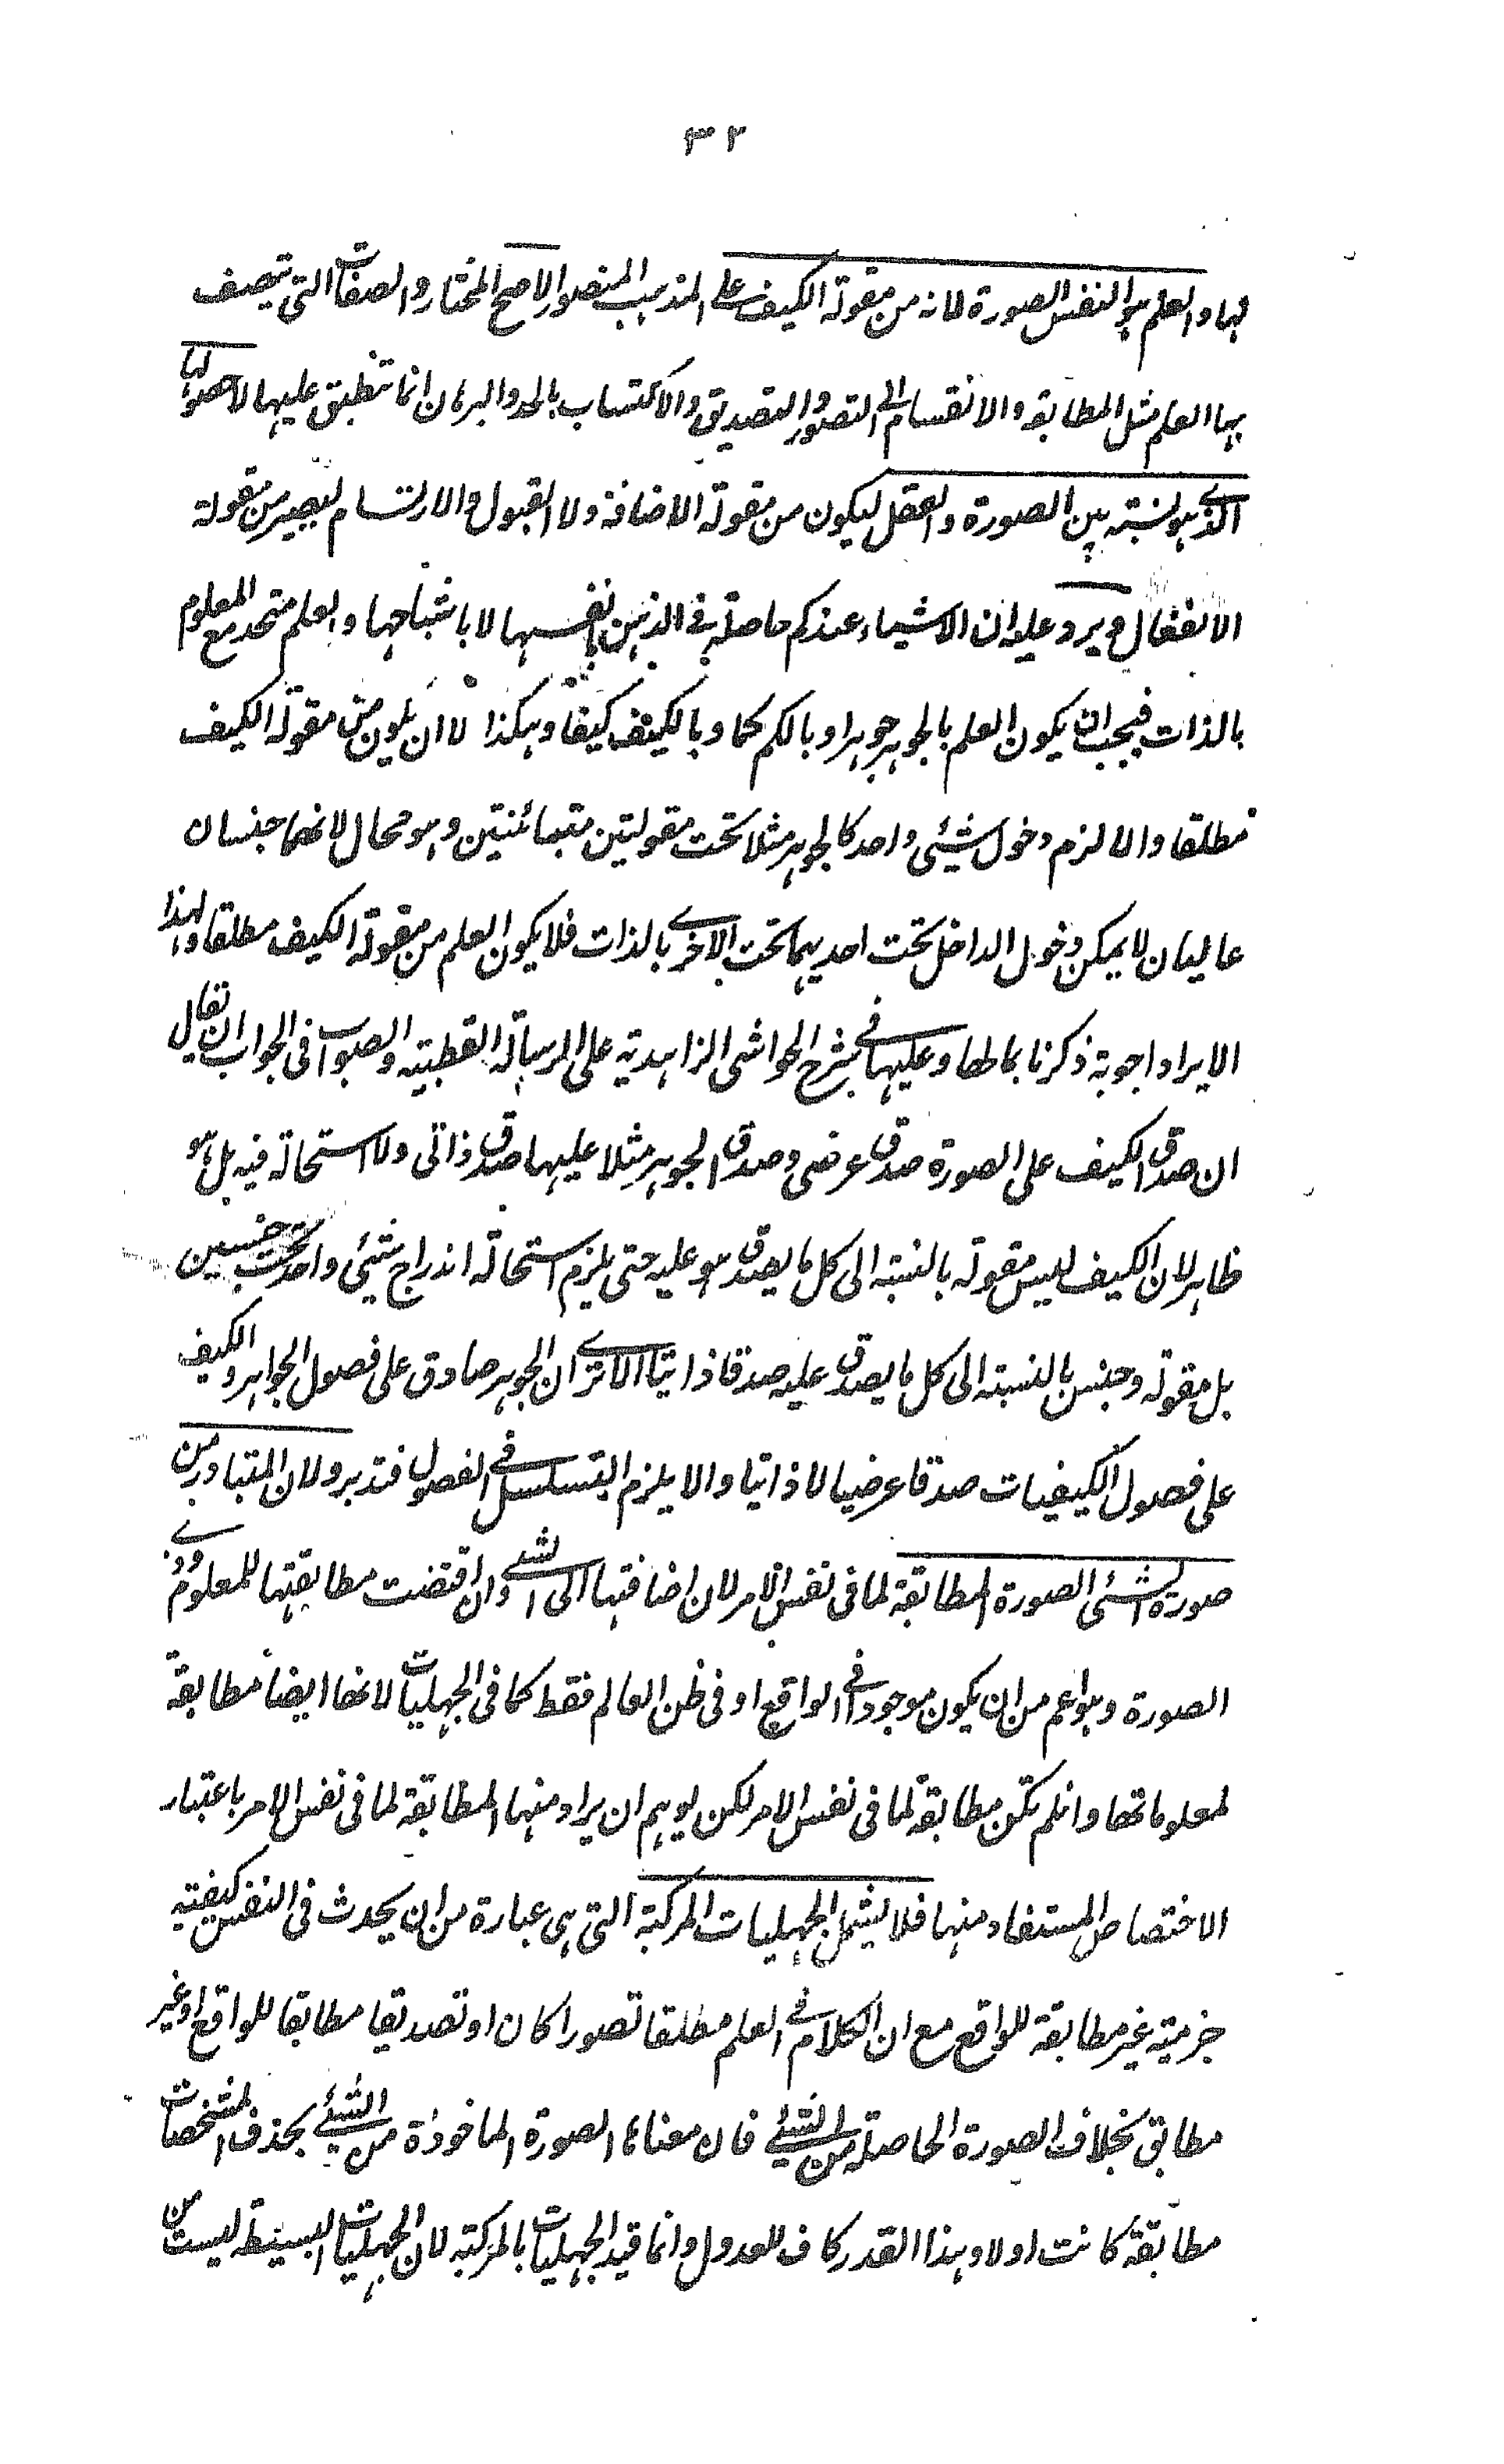 ٣٢
لها والعلم هو النفس الصورة لانه من مقولة الكيف على المذهب المنصور الاصح المختار والصفات التى يتصف
بها العلم مثل المطابقة والانقسام الى التصور والتصديق والاكتساب بالحد والبرهان انما تنطبق عليها لا حصولها
الذى هو نسبة بين الصورة والعقل ليكون من مقولة الاضافة ولا القبول والارتسام ليصير من مقولة
الانفعال ويرد عليه ان الاشياء عندكم حاصلة فى الذهن بانفسها لا باشباحها والعلم متحد مع المعلوم
بالذات فيجب ان يكون العلم بالجوهر جوهرا وبالكم كما وبالكيف كيفا وهكذا لا ان يكون من مقولة الكيف
مطلقا والا لزم دخول شيئى واحد كالجوهر مثلا تحت مقولتين متبائنتين وهو محال لانهما جنسان
عاليان لا يمكن دخول الداخل تحت احديهما تحت الاخرى بالذات فلا يكون العلم من مقولة الكيف مطلقا ولهذا
الايراد اجوبة ذكرنا بمالها وعليها فى شرح الحواشى الزاهدية على الرسالة القطبية والصواب فى الجواب ان يقال
ان صدق الكيف على الصورة صدق عرضى وصدق الجوهر مثلا عليها صدق ذاتى ولا استحالة فيه بل هو
ظاهر لان الكيف ليس مقولة بالنسبة الى كل ما يصدق هو عليه حتى يلزم استحالة اندراج شيئى واحد تحت جنسين
بل مقولة وجنس بالنسبة الى كل ما يصدق عليه صدقا ذاتيا الا ترى ان الجوهر صادق على فصول الجواهر والكيف
على فصول الكيفيات صدقا عرضيا لا ذاتيا والا يلزم التسلسل فى الفصول فتدبر ولان المتبادر من
صورة الشئى الصورة المطابقة لما فى نفس الامر لان اضافتها الى الشئ وان اقتضت مطابقتها للمعلوم وذى
الصورة وهو اعم من ان يكون موجودا فى الواقع او فى ظن العالم فقط كما فى الجهليات لانها ايضاً مطابقة
لمعلوماتها وانلم تكن مطابقة لما فى نفس الامر لكن يوهم ان يراد منها المطابقة لما فى نفس الامر باعتبار
الاختصاص المستفاد منها فلا يشمل الجهليات المركبة التى هى عبارة من ان يحدث فى النفس كيفية
جزمية غير مطابقة للواقع مع ان الكلام فى العلم مطلقا تصورا كان او تصديقا مطابقا للواقع او غير
مطابق بخلاف الصورة الحاصلة من الشيئ فان معناها الصورة الماخوذة من الشيئ بحذف المشخصات
مطابقة كانت اولا وهذا القدر كاف للعدول وانما قيد الجهليات بالمركبة لان الجهليات البسيطة ليست من